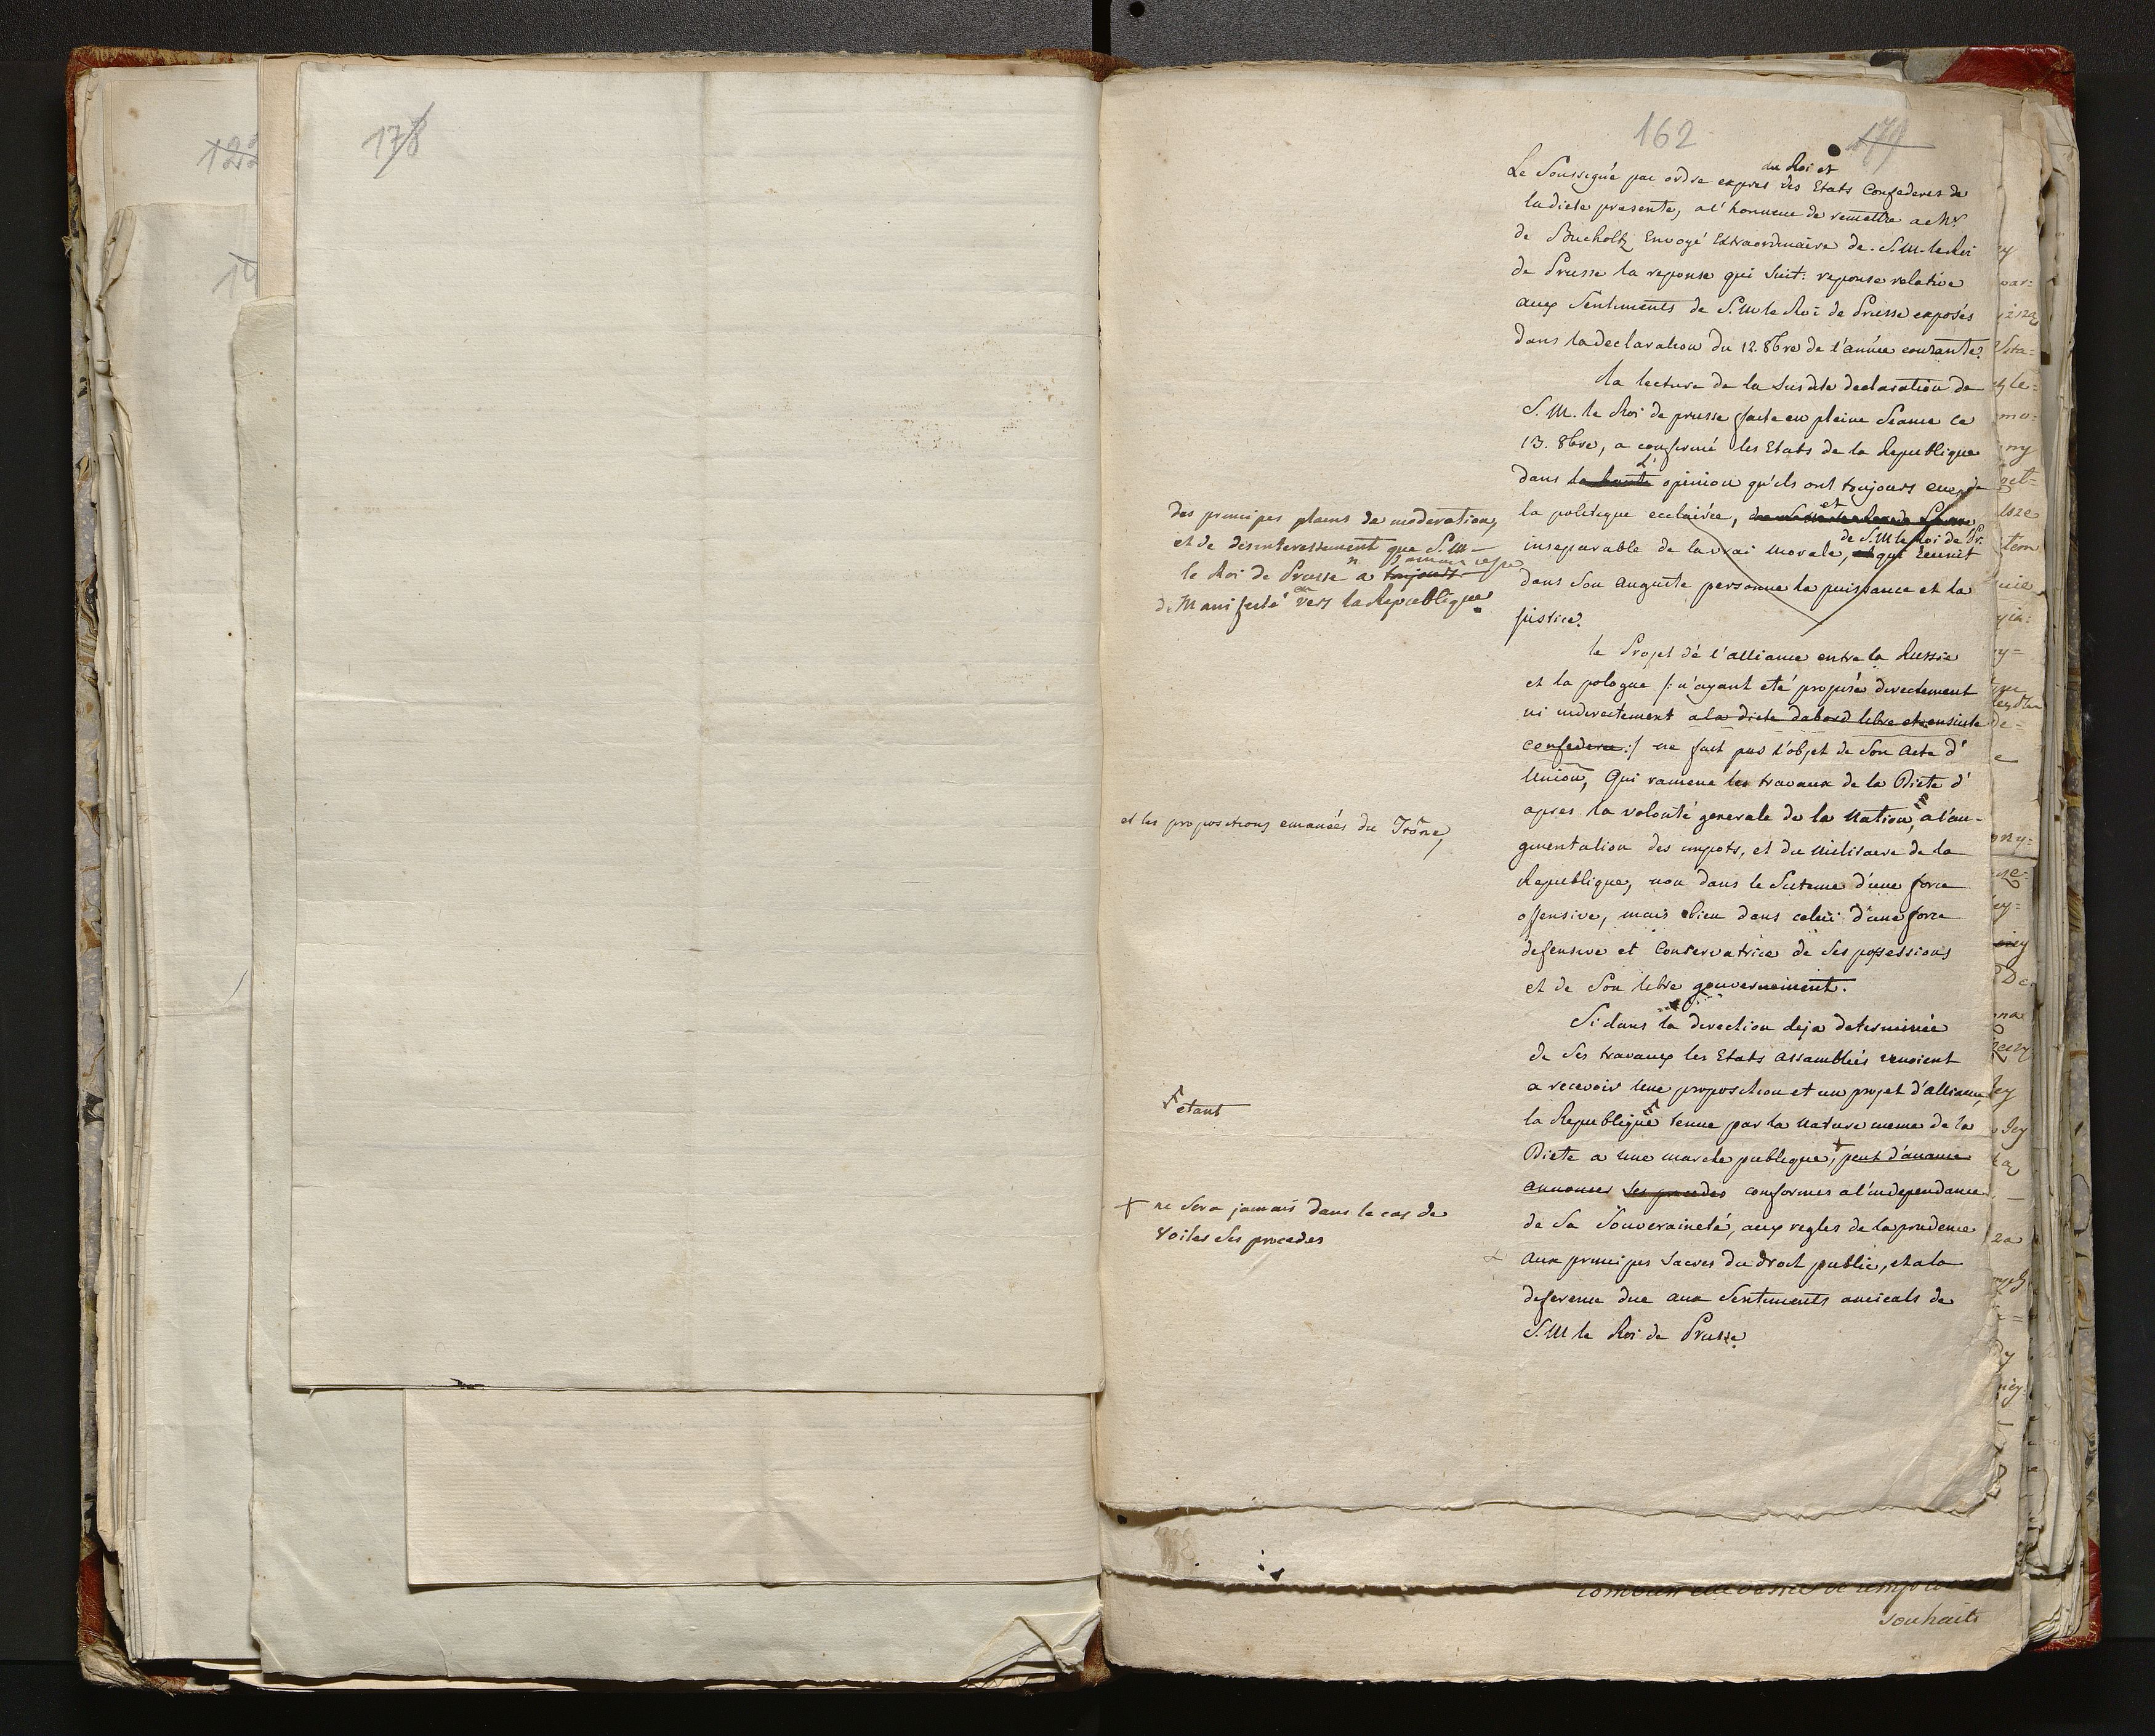 178
162
179
du Roi et
Le Soussigné par ordre expres des Etats Confederes de
la diete presente, a l'honneur de remettre a Mr.
de Bucholtz Envoyé Extraordinaire de S. M. le Roi
de Prusse la reponse qui suit: reponse relative
aux Sentiments de S. M le Roi de Prusse exposés
dans la declaration du 12. 8bre de l'année courante.
La lecture de la susdite declaration de
S. M. le Roi de prusse faite en pleine Seance le
13. 8bre, a confirmé les Etats de la Republique
L'
dans la haute opinion qu'ils ont toujours eue de
la politique eclairée, et
de S. M le Roi de Pr.
inseparable de la vrai morale, et qui reunit
dans son auguste personne la puissance et la
justice.
des principes pleins de moderation,
et de desinteressement que S. M
n' jamais cessé
le Roi de Prusse a toujours
de Manifesté envers la Republique.
le Projet de l'alliance entre la Russie
et la pologne /: n'ayant eté proposé directement
ni indirectement a la diete dabord libre et ensuite
confederée :/ ne fait pas l'objet de son acte d'
Union, Qui ramene les travaux de la Diete d'
apres la volonté generale de la Nation, a l'au-
gmentation des impots, et du militaire de la
Republique, non dans le Sisteme d'une force
offensive, mais bien dans celui d'une force
defensive et Conservatrice de ses possessions
et de son libre gouvernement.
et les propositions emanées du Trône,
Si dans la direction deja determinée
de ses travaux les Etats assemblés venoient
a recevoir une proposition et un projet d'alliance,
la Republique tenue par la Nature meme de la
Diete a une marche publique, + peut d'avance
annoncer ses procedes conformes a l'independance
de sa Souveraineté, aux regles de la prudence
aux principes sacres du droit public, et a la
deference due aux Sentiments amicals de
S. M le Roi de Prusse.
etant
+ ne sera jamais dans le cas de
voiler ses procedes
souhaits